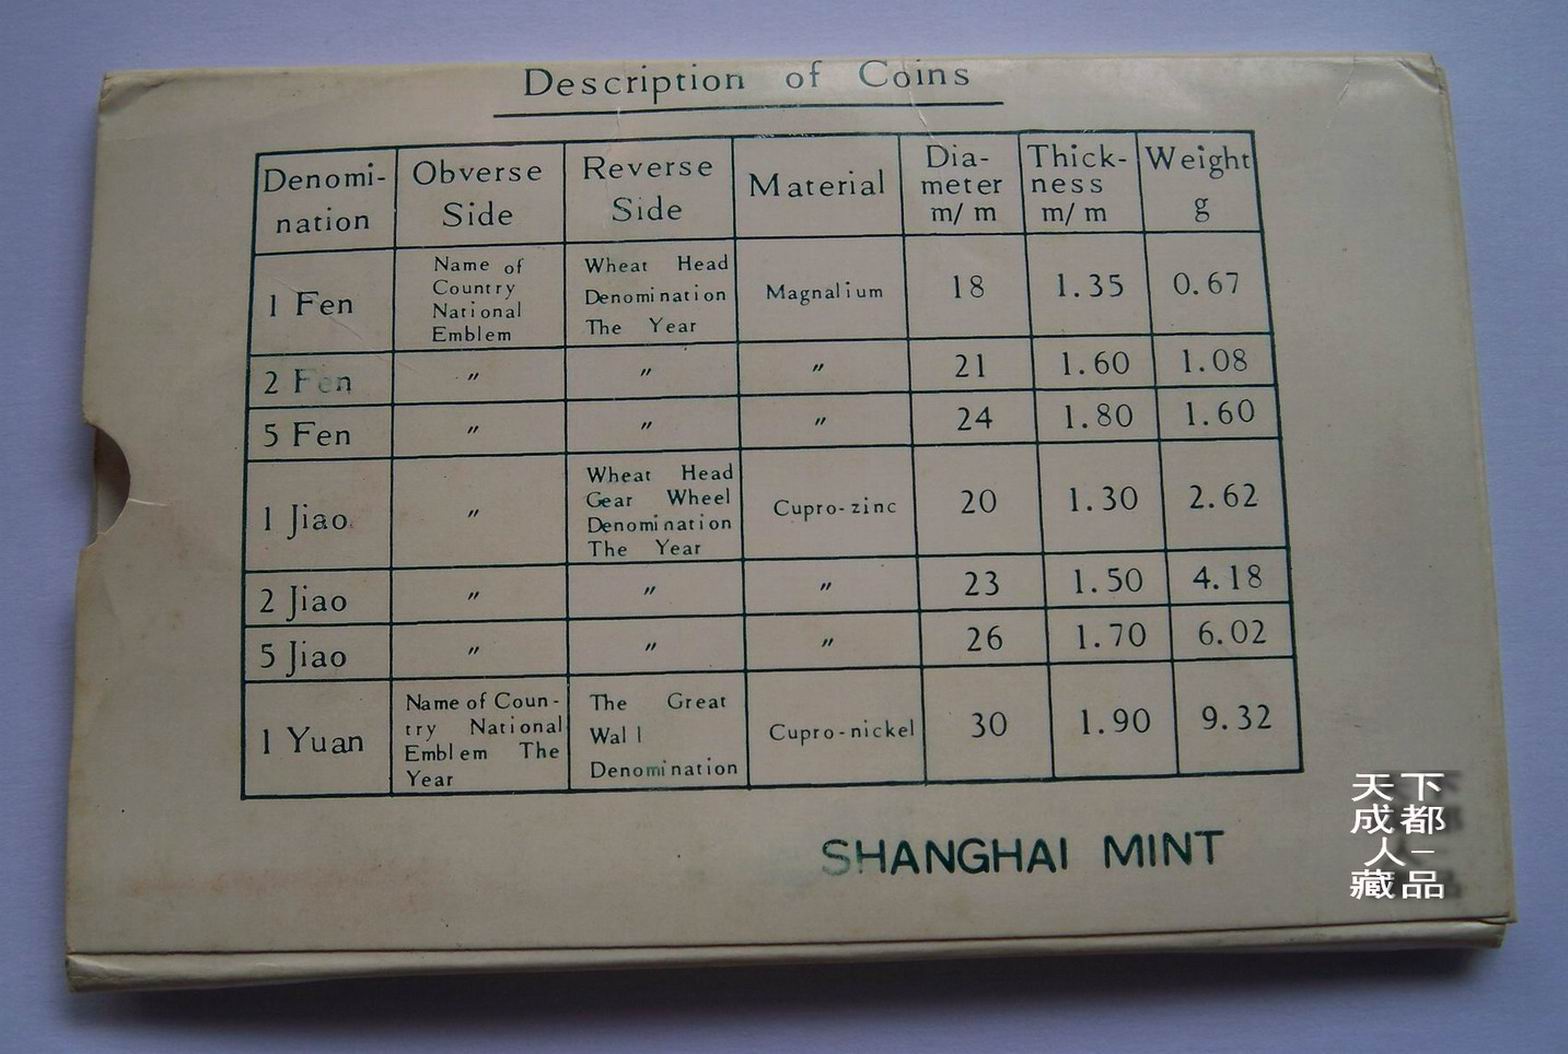 Description of Coins
Denomi-
nation
Obverse
Side
Reverse
Side
Material
Dia-
meter
m/m
Thick-
ness
m/m
Weight
g
1 Fen
Name of
Country
National
Emblem
Wheat Head
Denomination
The Year
Magnalium
18
1.35
0.67
2 Fen
〃
〃
〃
21
1.60
1.08
5 Fen
〃
〃
〃
24
1.80
1.60
1 Jiao
〃
Wheat Head
Gear Wheel
Denomination
The Year
Cupro-zinc
20
1.30
2.62
2 Jiao
〃
〃
〃
23
1.50
4.18
5 Jiao
〃
〃
〃
26
1.70
6.02
1 Yuan
Name of Coun-
try National
Emblem The
Year
The Great
Wall
Denomination
Cupro-nickel
30
1.90
9.32
SHANGHAI MINT
天下
成都
人一
藏品